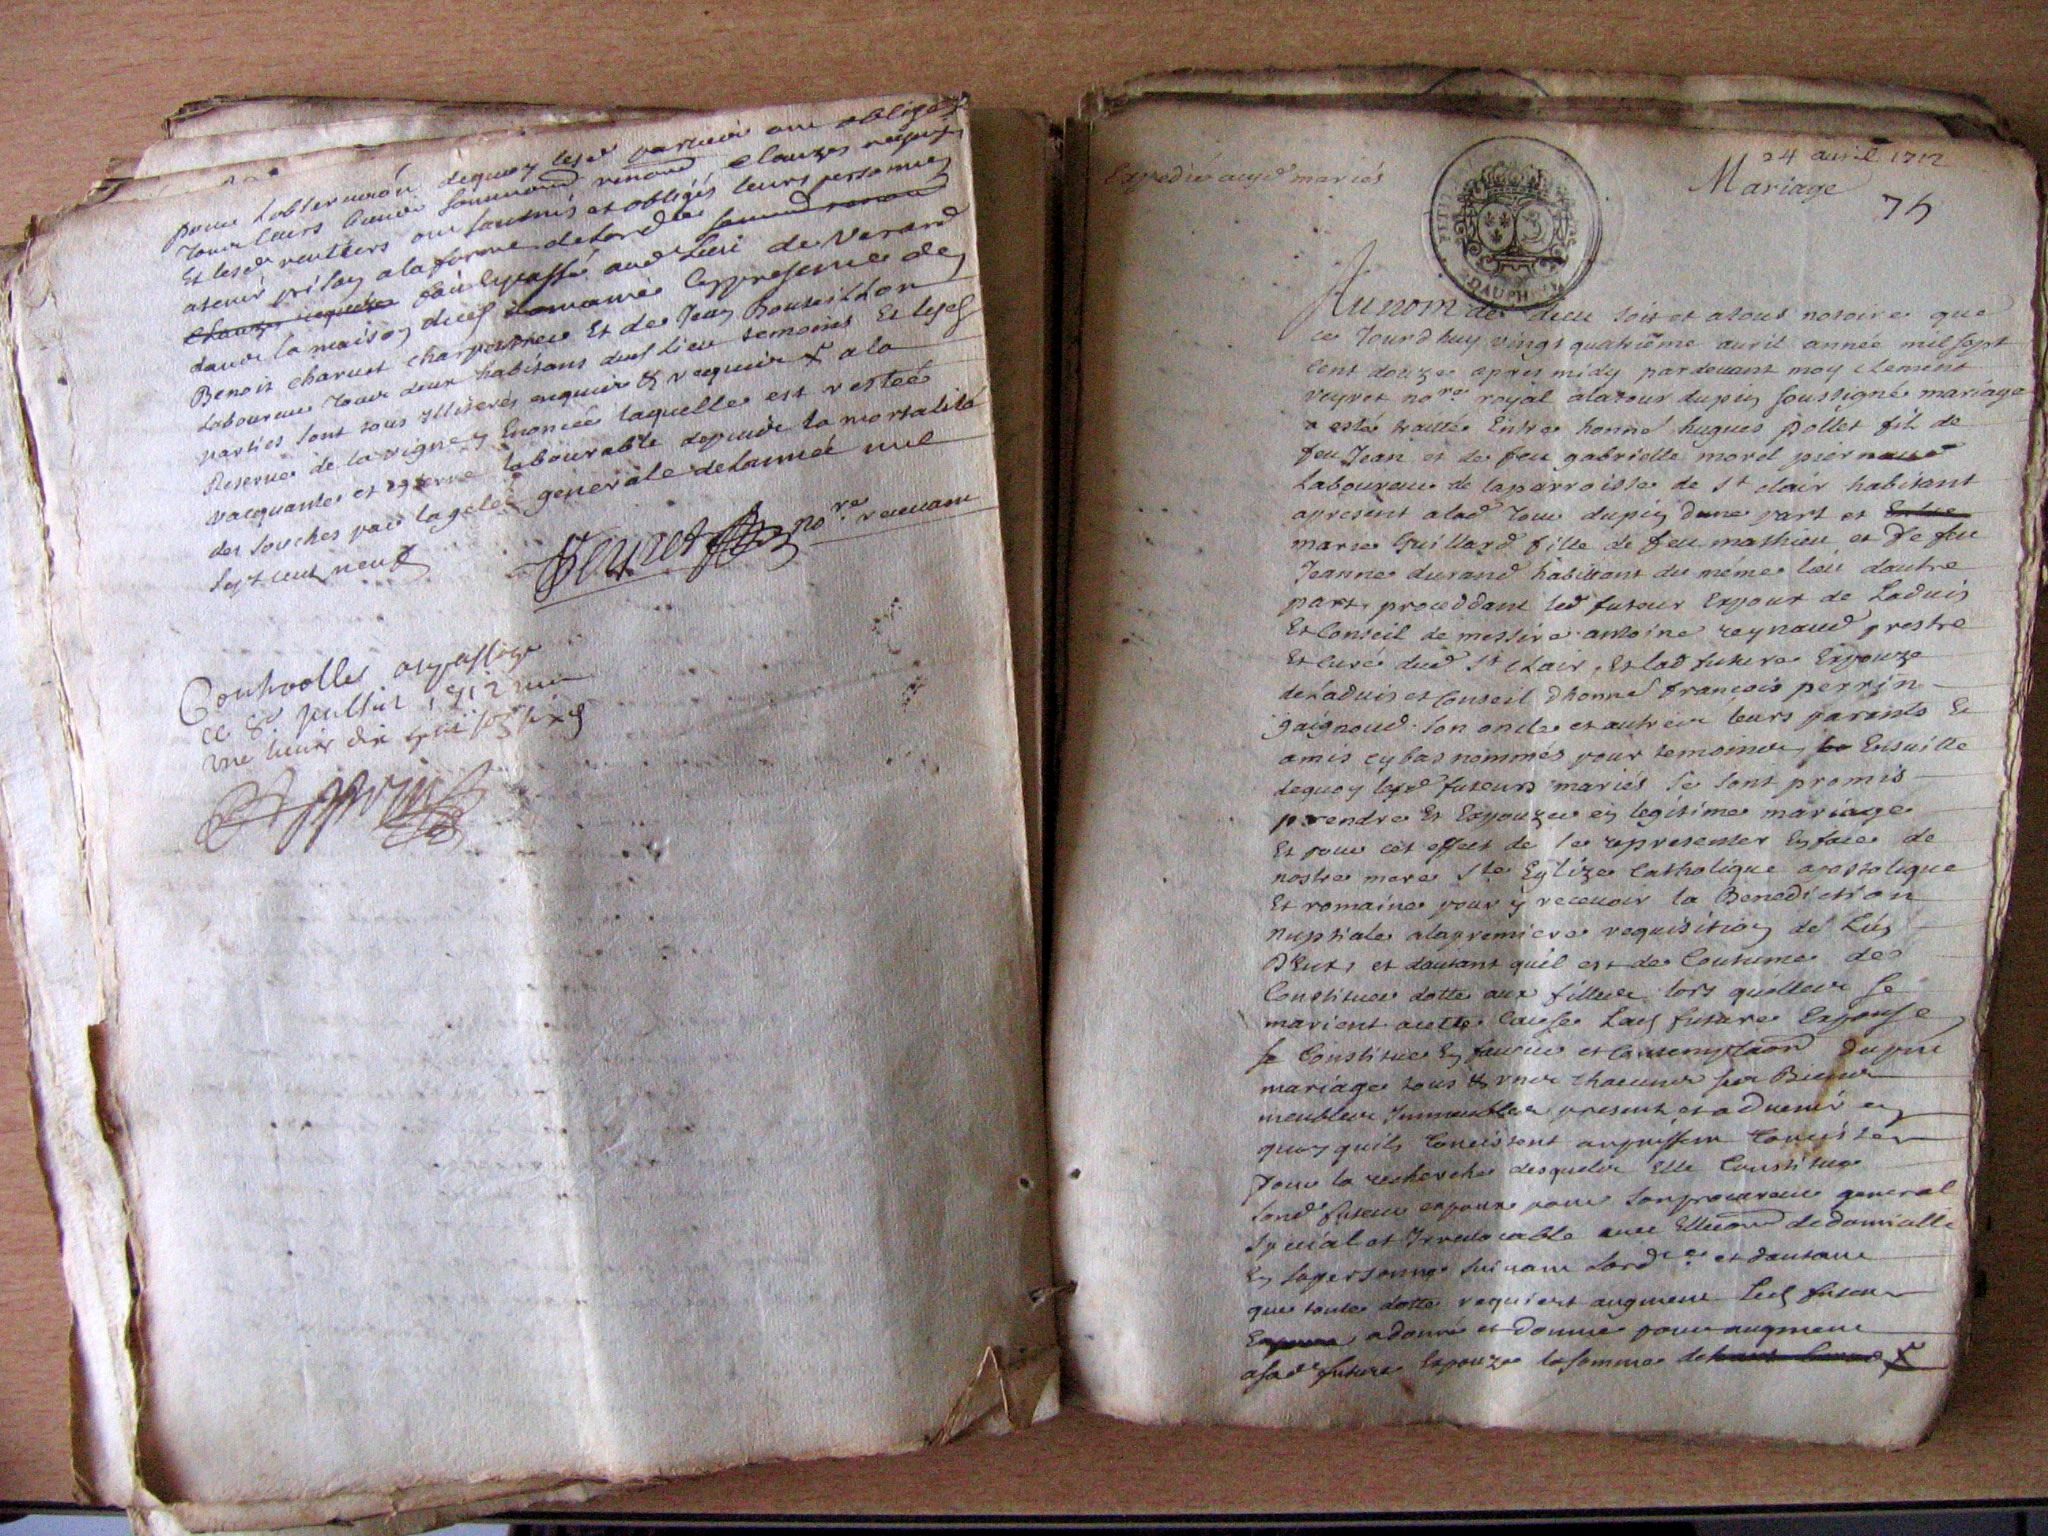 pour lobservaōn dequoy lesd parties ont obligé
tous leurs biens soummō renonō clauzes requis
Et lesd rentiers ont soubmis et obligés leurs personnes
atenir prison ala forme delordce soummō renonō
clauzes requises fait et passé aud lieu de Verard
dans la maison dud presence de
Benoit charuet charpentier Et de Jean Bouteillon
laboureur tous deux habitans dud lieu temoins Et lesd
parties sont tous illiteres enquis & requis X ala
Reserve de la vigne y Enoncée laquelle est restée
vacquante et terre labourable depuis la mortalité
des souches par la gelée generale delannée mil
sept cent neuf
Veyret nore recevant
Controollé au passage
ce 8e juillet 1712
une livre dix sept sols six d
Expedié auxd mariés
24 avril 1712
Mariage
75
PETIT
DAUPHINE
Au nom de dieu soit et atous notoire que
ce Jourdhuy vingt quatrième avril année mil sept
Cent douze apres midy pardevant moy clement
veyret nore royal alatour dupin soussigné mariage
a esté traitté Entre honné hugues pollet fils de
feu Jean et de feu gabrielle morel
Laboureur de laparroisse de St clair habitant
apresent alad tour dupin dune part et Entre
marie Guillard fille de feu mathieu et de feu
Jeanne durand habittant du même lieu dautre
part, proceddant led futeur Expoux de Ladvis
Et Conseil de messire antoine reynaud prestre
Et curé dud St clair, Et lad future Expouze
deladvis et Conseil dhonné françois perrin
gaignoud son oncle et autres leurs parents Et
amis cy bas nommés pour temoins, Ensuitte
dequoy lesd futeurs mariés se sont promis
prendre Et Expouzer en legitime mariage
Et pour cet effect de se representer En face de
nostre mere Ste Eglize Catholique apostolique
Et romaine pour y recevoir la Benediction
nuptiale alapremiere requisition de Lun
D'eux, et dautant quil est de Coutume de
Constituer dotte aux filles lors quelles se
marient acette Cause Lad future Expouse
se Constitue En faveur et Contemplaōn du pnt
mariage tous & uns chacuns ses Biens
meubles Immeubles present et advenir en
quoy quils Concistent ou puissent Concister
pour la recherche desquels Elle Constitue
sond futeur expoux pour son procureur general
special et Irrevocable avec Ellection dedomicille
En sapersonne suivant lordce et dautant
que toute dotte requiert augment Led futeur
Expoux a donné et donne pour augment
asad future Expouze lasomme de X